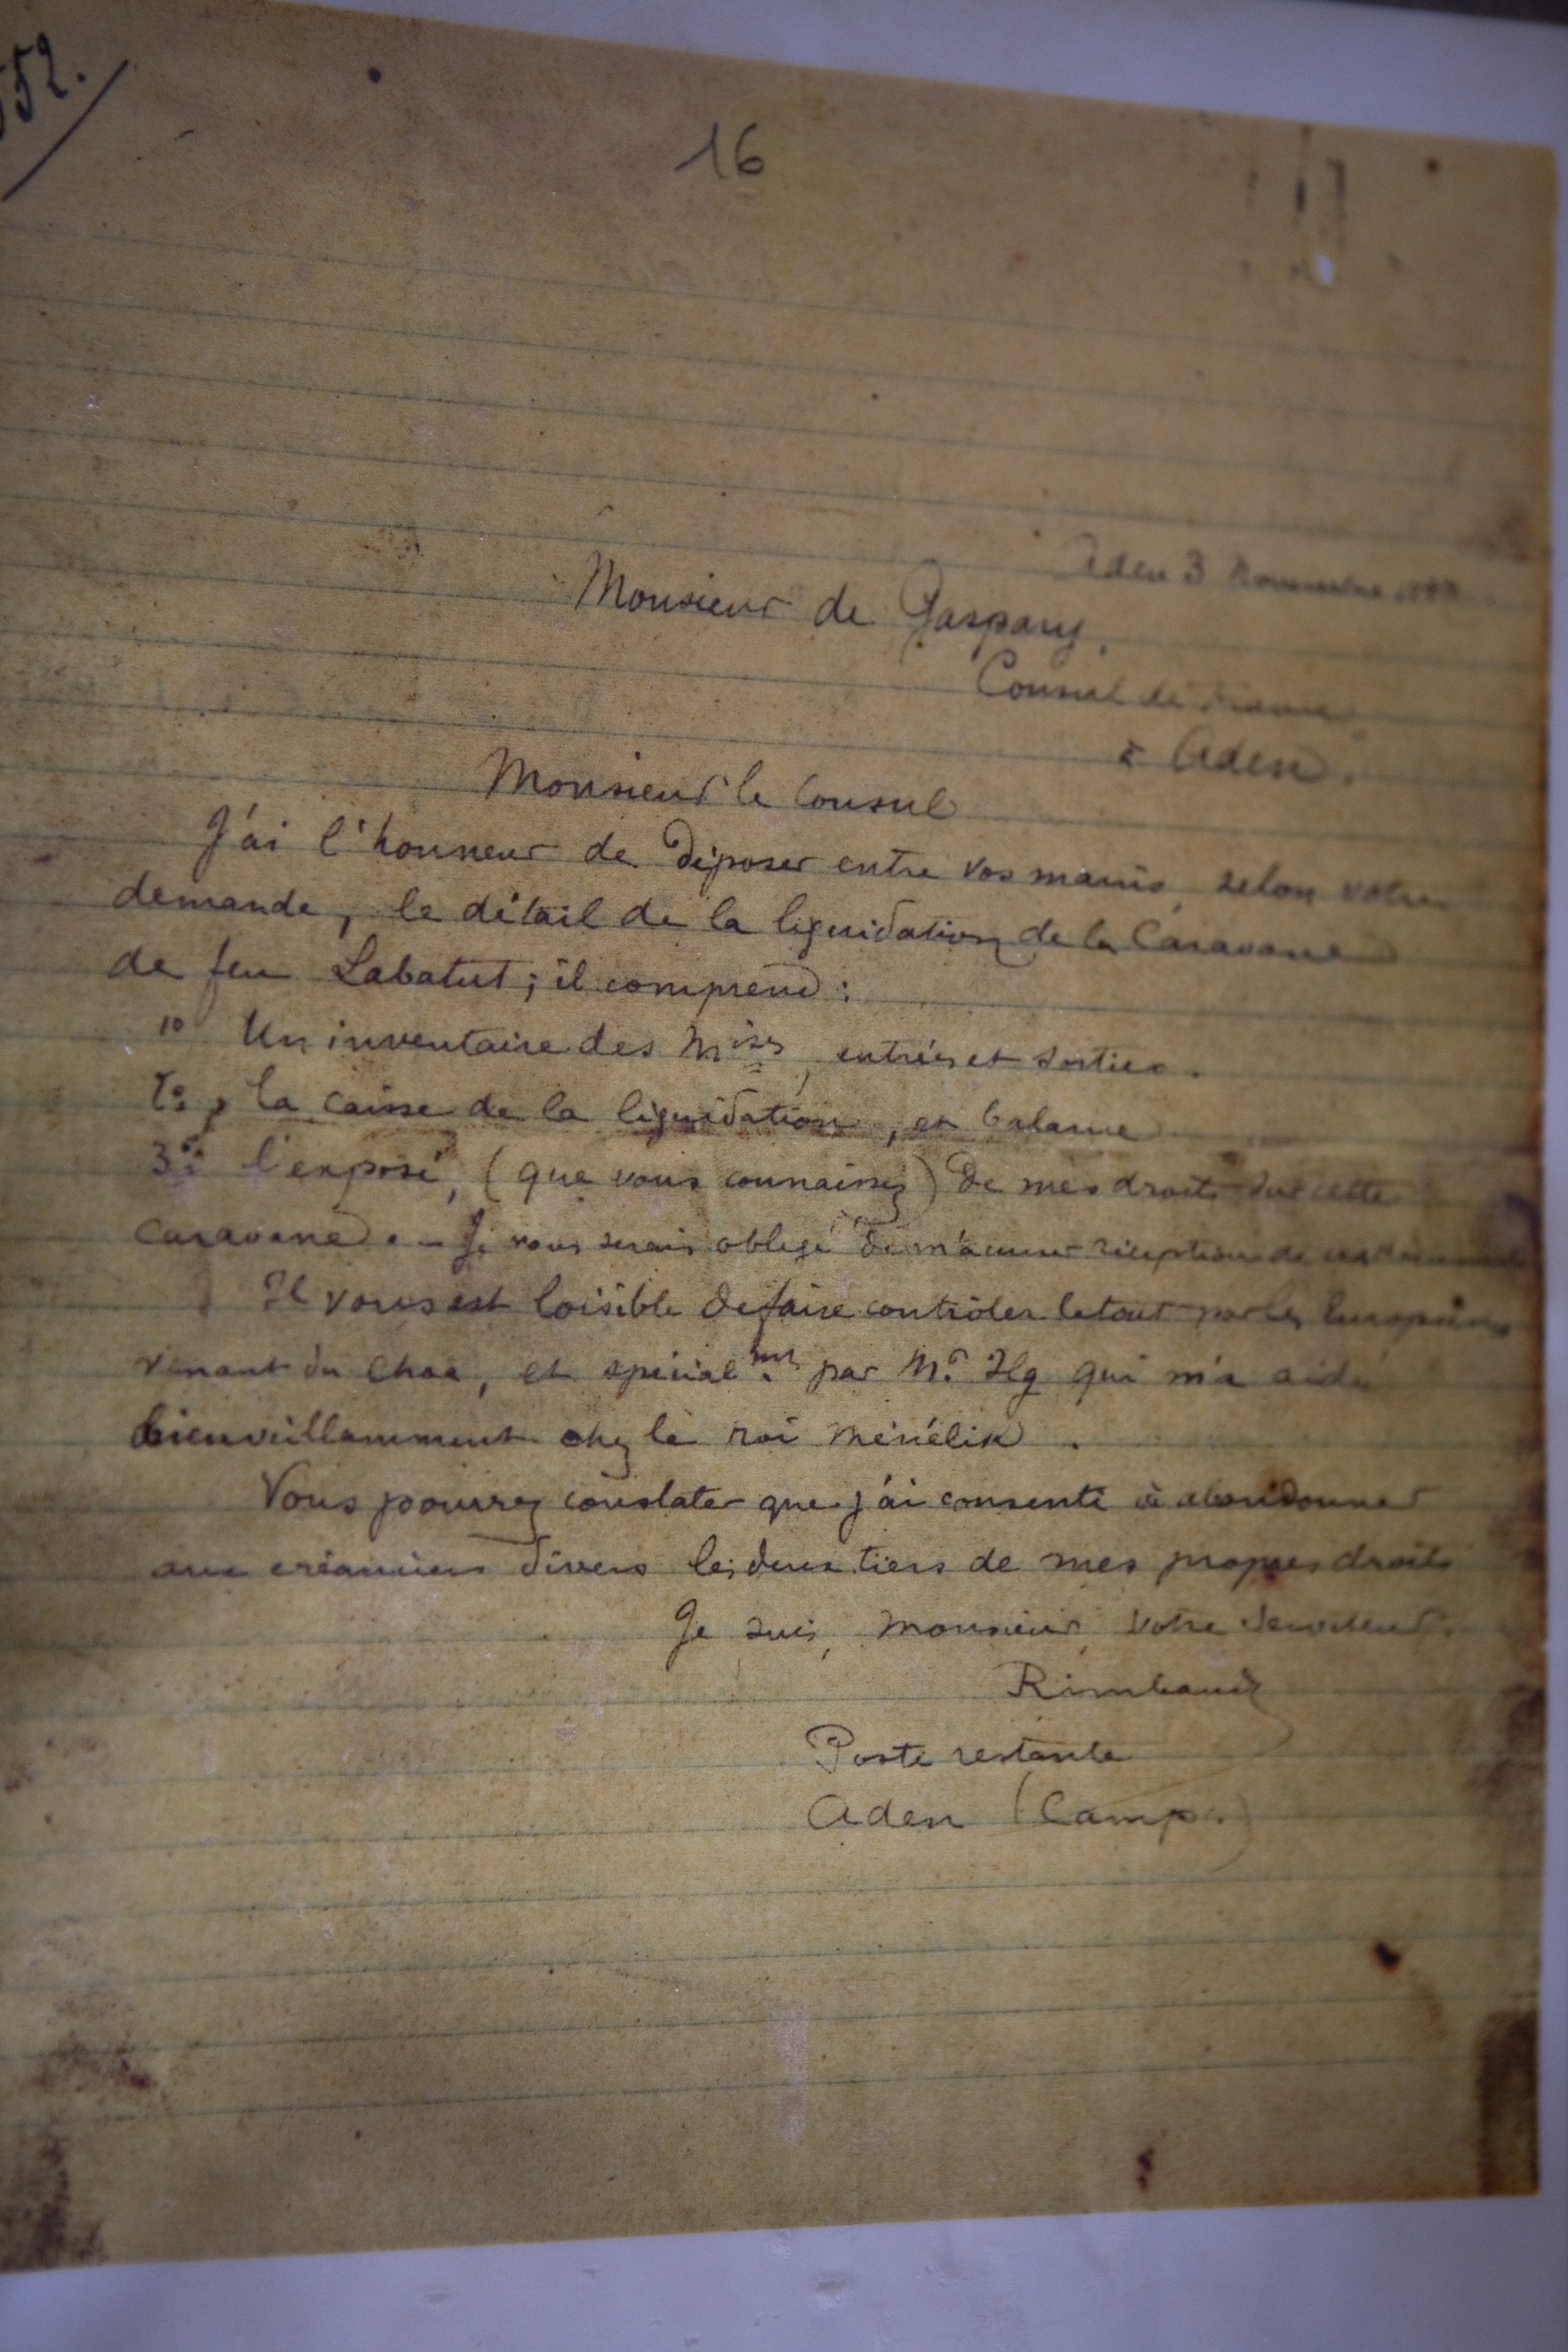 552.
16
Aden 3 Novembre 1887
Monsieur de Gaspary,
Consul de France
à Aden.
Monsieur le Consul
J'ai l'honneur de déposer entre vos mains, selon votre
demande, le détail de la liquidation de la Caravane
de feu Labatut ; il comprend :
1º Un inventaire des Mises, entrées et sorties.
2º, la caisse de la liquidation, et balance
3º: l'exposé, (que vous connaissez) de mes droits sur cette
caravane. - Je vous serais obligé de m'accuser réception de ces documents
Il vous est loisible de faire contrôler le tout par les Européens
venant du Choa, et spécialmt. par Mr. Ilg qui m'a aidé
bienveillamment chez le roi Ménélik.
Vous pourrez constater que j'ai consenti à abandonner
aux créanciers divers les deux tiers de mes propres droits
Je suis, Monsieur, votre serviteur.
Rimbaud
Poste restante
Aden (Camp.)